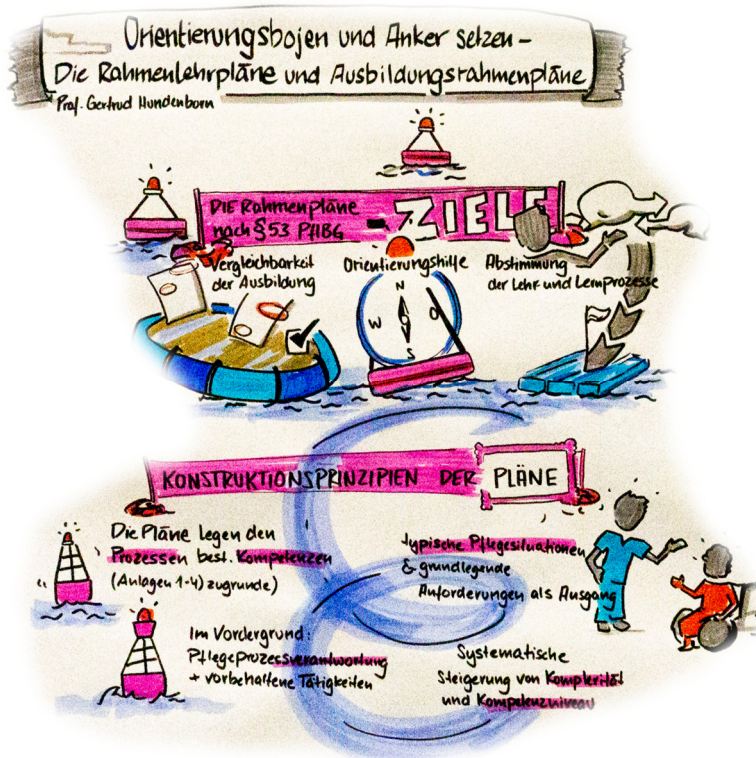 Orientierungsbojen und Anker setzen –
Die Rahmenlehrpläne und Ausbildungsrahmenpläne
Prof. Gertrud Hundenborn
DIE Rahmenpläne
nach § 53 PflBG - ZIELE
Vergleichbarkeit
der Ausbildung
Orientierungshilfe
Abstimmung
der Lehr- und Lernprozesse
N
W O
S
KONSTRUKTIONSPRINZIPIEN DER PLÄNE
Die Pläne legen den
Prozessen best. Kompetenzen
(Anlagen 1-4) zugrunde)
typische Pflegesituationen
& grundlegende
Anforderungen als Ausgang
Im Vordergrund:
Pflegeprozessverantwortung
+ vorbehaltene Tätigkeiten
Systematische
Steigerung von Komplexität
und Kompetenzniveau